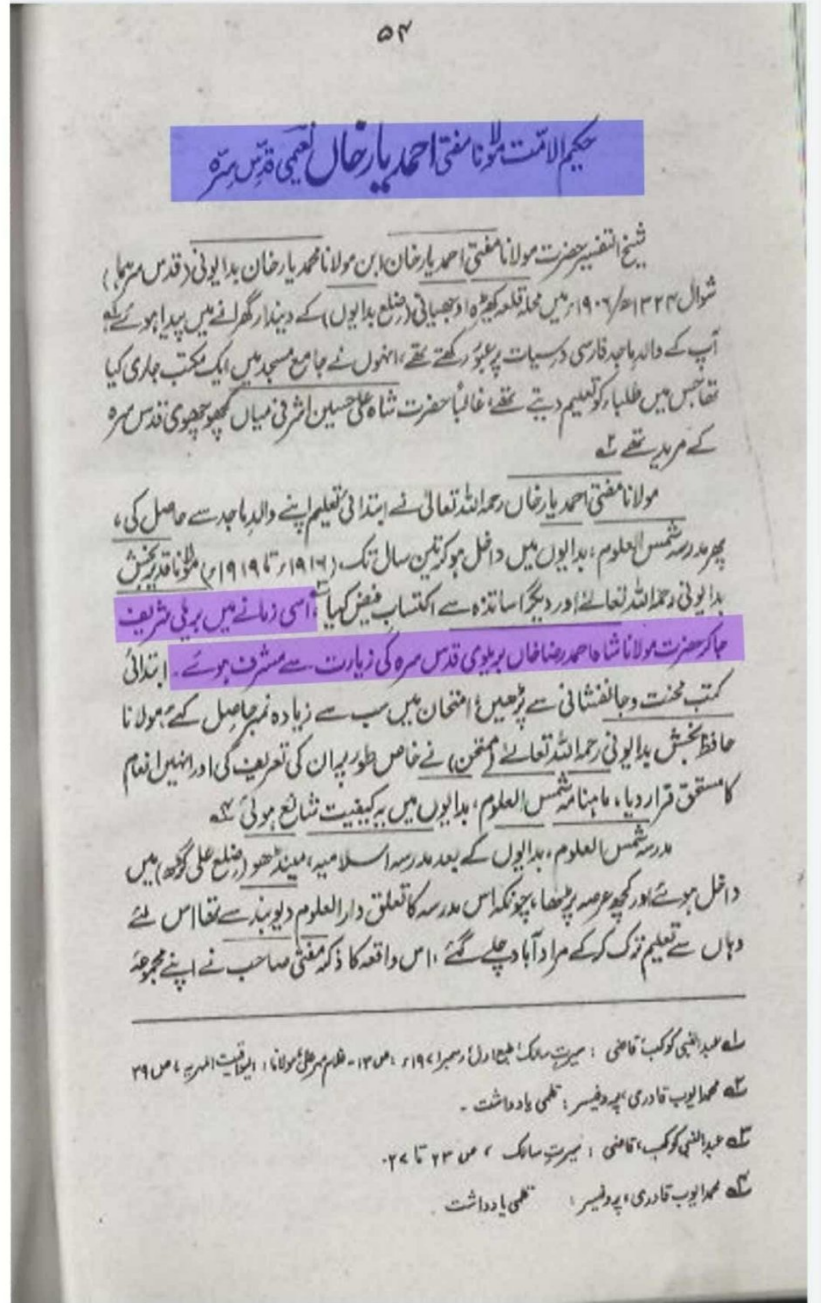 ۵۴
حکیم الامّت مولانا مفتی احمد یار خاں نعیمی قدس سرہ
شیخ التفسیر حضرت مولانا مفتی احمد یار خان ابن مولانا محمد یار خان بدایونی (قدس سرہما)
شوال ۱۳۲۴ھ/۱۹۰۶ء میں محلہ قلعہ کھیڑہ اوجھیانی (ضلع بدایوں) کے دیندار گھرانے میں پیدا ہوئے ۱؎
آپ کے والد ماجد فارسی درسیات پر عبور رکھتے تھے، انہوں نے جامع مسجد میں ایک مکتب جاری کیا
تھا جس میں طلباء کو تعلیم دیتے تھے، غالباً حضرت شاہ علی حسین اشرفی میاں کچھوچھوی قدس سرہ
کے مرید تھے ۲؎
مولانا مفتی احمد یار خاں رحمہ اللہ تعالیٰ نے ابتدائی تعلیم اپنے والد ماجد سے حاصل کی،
پھر مدرسہ شمس العلوم، بدایوں میں داخل ہو کر تین سال تک، (۱۹۱۶ء تا ۱۹۱۹ء) مولانا قدیر بخش
بدایونی رحمہ اللہ تعالےٰ اور دیگر اساتذہ سے اکتساب فیض کیا ۳؎، اسی زمانے میں بریلی شریف
جا کر حضرت مولانا شاہ احمد رضا خاں بریلوی قدس سرہ کی زیارت سے مشرف ہوئے۔ ابتدائی
کتب محنت و جانفشانی سے پڑھیں، امتحان میں سب سے زیادہ نمبر حاصل کئے، مولانا
حافظ بخش بدایونی رحمہ اللہ تعالےٰ (ممتحن) نے خاص طور پر ان کی تعریف کی اور انہیں انعام
کا مستحق قرار دیا، ماہنامہ شمس العلوم، بدایوں میں یہ کیفیت شائع ہوئی ۴؎
مدرسہ شمس العلوم، بدایوں کے بعد مدرسہ اسلامیہ، مینڈھو (ضلع علی گڑھ) میں
داخل ہوئے اور کچھ عرصہ پڑھا، چونکہ اس مدرسہ کا تعلق دار العلوم دیوبند سے تھا اس لئے
وہاں سے تعلیم ترک کر کے مراد آباد چلے گئے، اس واقعہ کا ذکر مفتی صاحب نے اپنے مجموعۂ
۱؎ عبدالنبی کوکب، قاضی : سیرت سالک، طبع اول، دسمبر ۱۹۷۱ء، ص ۱۳ - غلام مہر علی، مولانا : الیواقیت المہریہ، ص ۳۹
۲؎ محمد ایوب قادری، پروفیسر : قلمی یادداشت -
۳؎ عبدالنبی کوکب، قاضی : سیرت سالک ، ص ۲۳ تا ۲۷.
۴؎ محمد ایوب قادری، پروفیسر : قلمی یادداشت